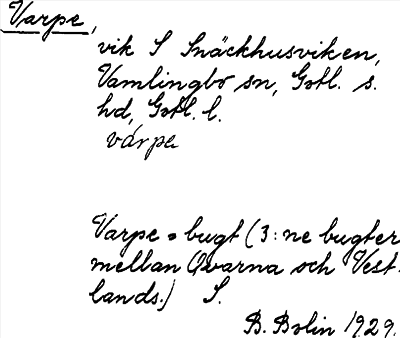 Varpe,
vik S Snäckhusviken,
Vamlingbo sn, Gotl. s.
hd, Gotl. l.
várpa
Varpe = bugt (3:ne bugter
mellan Qvarna och Vest-
lands.) S.
B. Bolin 1929.